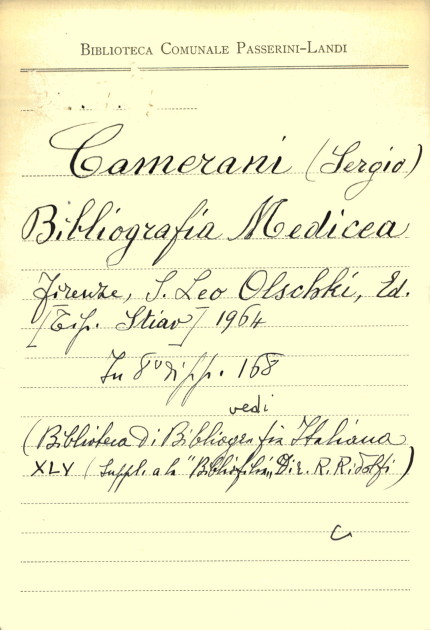 BIBLIOTECA COMUNALE PASSERINI-LANDI
Camerani (Sergio)
Bibliografia Medicea
Firenze, S. Leo Olschki, Ed.
[Tip. Stiav] 1964
In 8° di pp. 168
vedi
(Biblioteca di Bibliografia Italiana
XLV (Suppl. a la "Bibliofilia" Dir. R. Ridolfi)
C